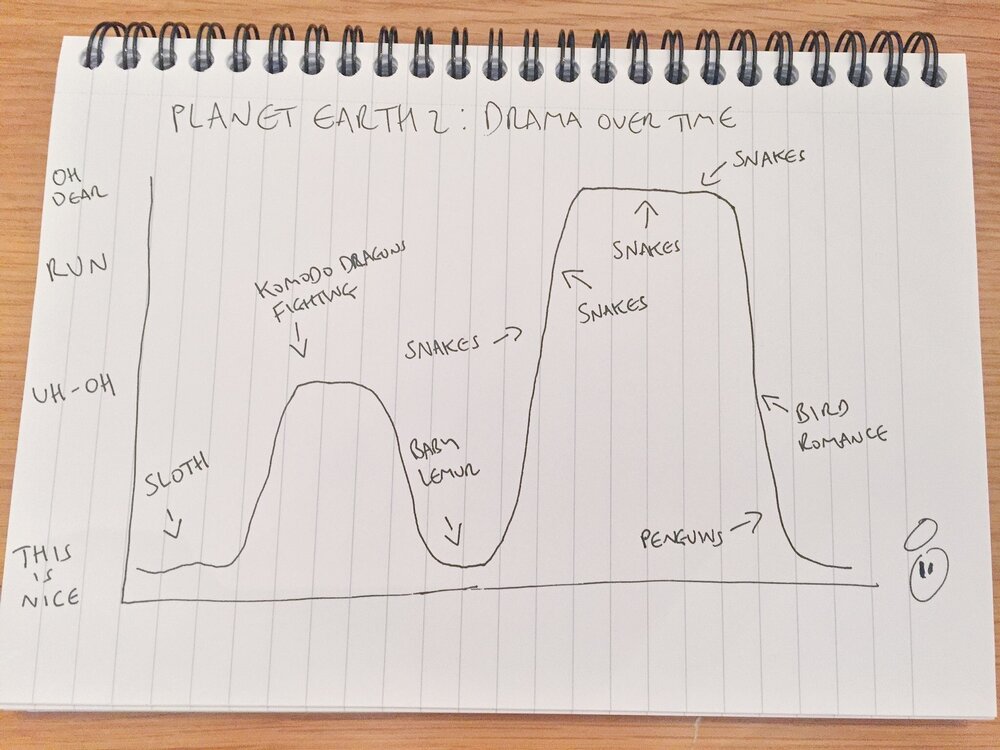 PLANET EARTH 2: DRAMA OVER TIME
OH
DEAR
RUN
UH-OH
THIS
IS
NICE
SLOTH
KOMODO DRAGONS
FIGHTING
BABY
LEMUR
SNAKES
SNAKES
SNAKES
SNAKES
BIRD
ROMANCE
PENGUINS
11